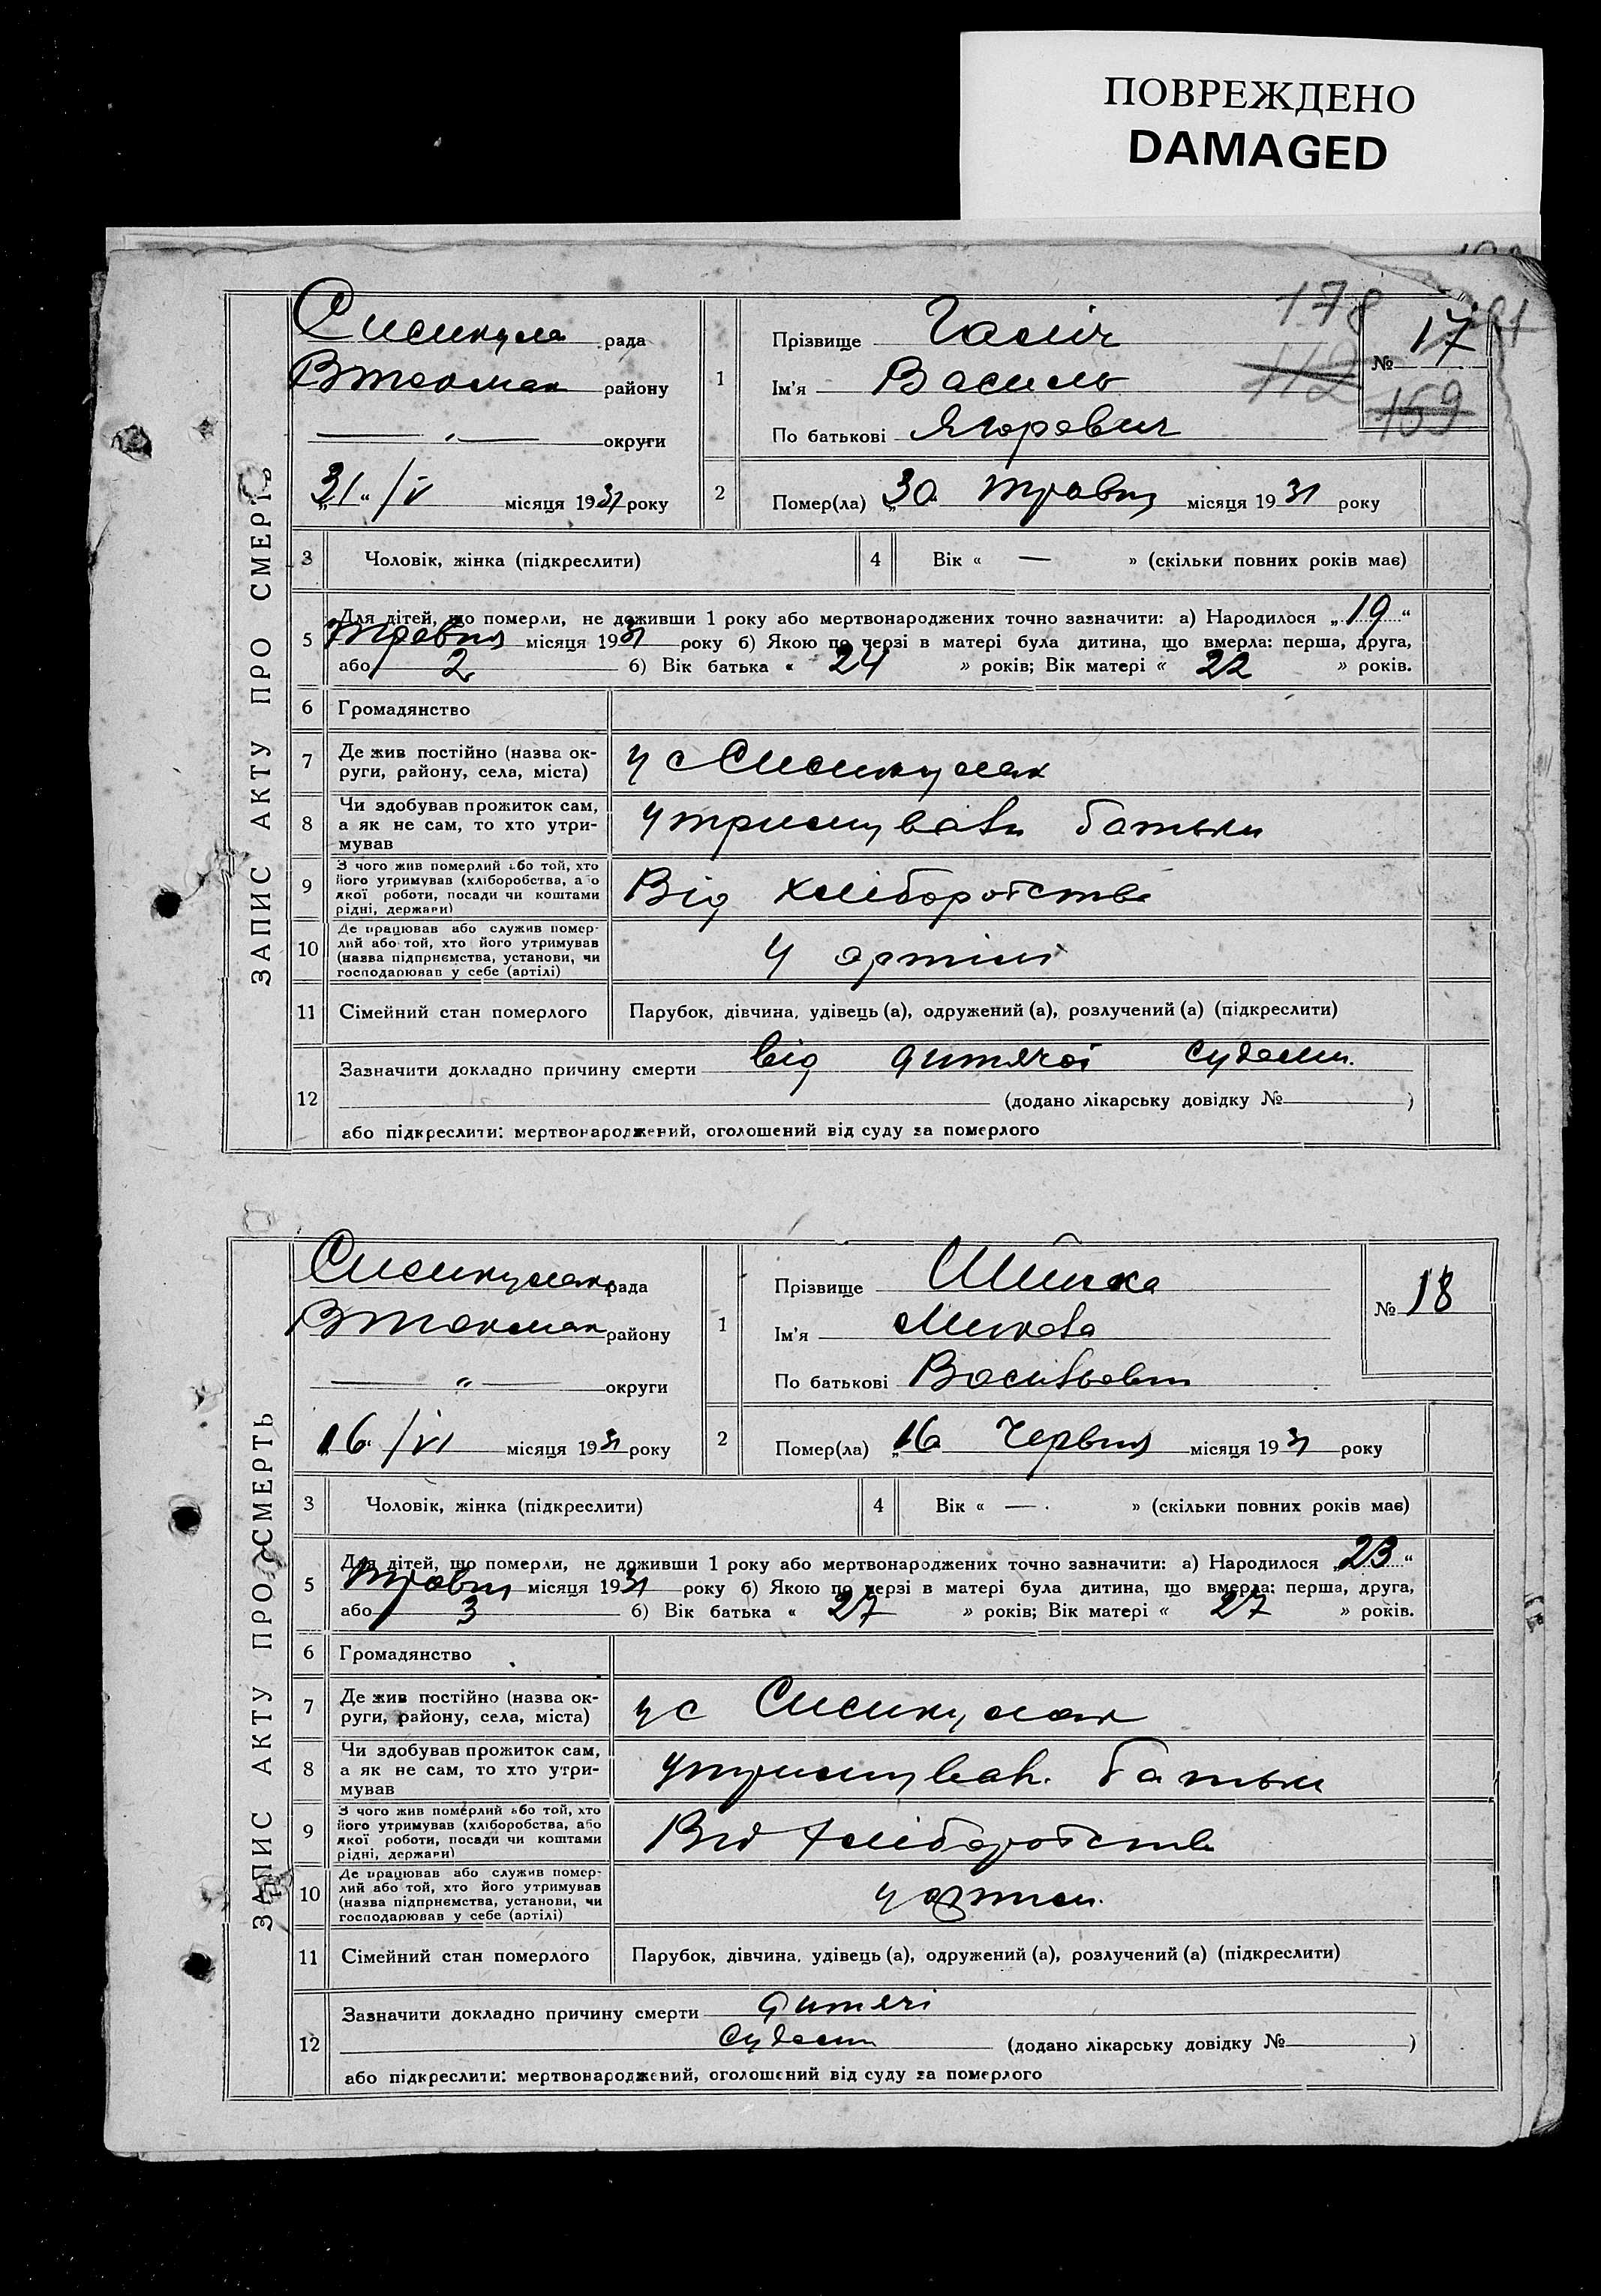 ПОВРЕЖДЕНО
DAMAGED
178
17
№
112
159
ЗАПИС АКТУ ПРО СМЕРТЬ
рада
Втокмак району
— „ — округи
„31“ /V місяця 1931 року
1
Прізвище Галіч
Ім'я Василь
По батькові Ягорович
2
Помер(ла) „30 травня місяця 1931 року
3
Чоловік, жінка (підкреслити)
4
Вік « — » (скільки повних років має)
5
Для дітей, що померли, не доживши 1 року або мертвонароджених точно зазначити: а) Народилося „19“
травня місяця 1931 року б) Якою по черзі в матері була дитина, що вмерла: перша, друга,
або 2 б) Вік батька « 24 » років; Вік матері « 22 » років.
6
Громадянство
7
Де жив постійно (назва ок-
руги, району, села, міста)
у с
8
Чи здобував прожиток сам,
а як не сам, то хто утри-
мував
утримували батьки
9
З чого жив померлий або той, хто
його утримував (хліборобства, або
якої роботи, посади чи коштами
рідні, держави)
Від хліборобства
10
Де працював або служив помер-
лий або той, хто його утримував
(назва підприємства, установи, чи
господарював у себе (артілі)
У артілі
11
Сімейний стан померлого
Парубок, дівчина, удівець (а), одружений (а), розлучений (а) (підкреслити)
12
Зазначити докладно причину смерти від дитячої судоми.
(додано лікарську довідку № )
або підкреслити: мертвонароджений, оголошений від суду за померлого
ЗАПИС АКТУ ПРО СМЕРТЬ
рада
Втокмак району
— „ — округи
„16“ /VI місяця 1931 року
1
Прізвище
Ім'я Микола
По батькові Васильович
№ 18
2
Помер(ла) „16 Червня місяця 1931 року
3
Чоловік, жінка (підкреслити)
4
Вік « — » (скільки повних років має)
5
Для дітей, що померли, не доживши 1 року або мертвонароджених точно зазначити: а) Народилося „23“
травня місяця 1931 року б) Якою по черзі в матері була дитина, що вмерла: перша, друга,
або 3 б) Вік батька « 27 » років; Вік матері « 27 » років.
6
Громадянство
7
Де жив постійно (назва ок-
руги, району, села, міста)
у с
8
Чи здобував прожиток сам,
а як не сам, то хто утри-
мував
утримував. батьки
9
З чого жив померлий або той, хто
його утримував (хліборобства, або
якої роботи, посади чи коштами
рідні, держави)
Від хліборобств
10
Де працював або служив помер-
лий або той, хто його утримував
(назва підприємства, установи, чи
господарював у себе (артілі)
у артілі.
11
Сімейний стан померлого
Парубок, дівчина, удівець (а), одружений (а), розлучений (а) (підкреслити)
12
Зазначити докладно причину смерти дитячі
судоми (додано лікарську довідку № )
або підкреслити: мертвонароджений, оголошений від суду за померлого